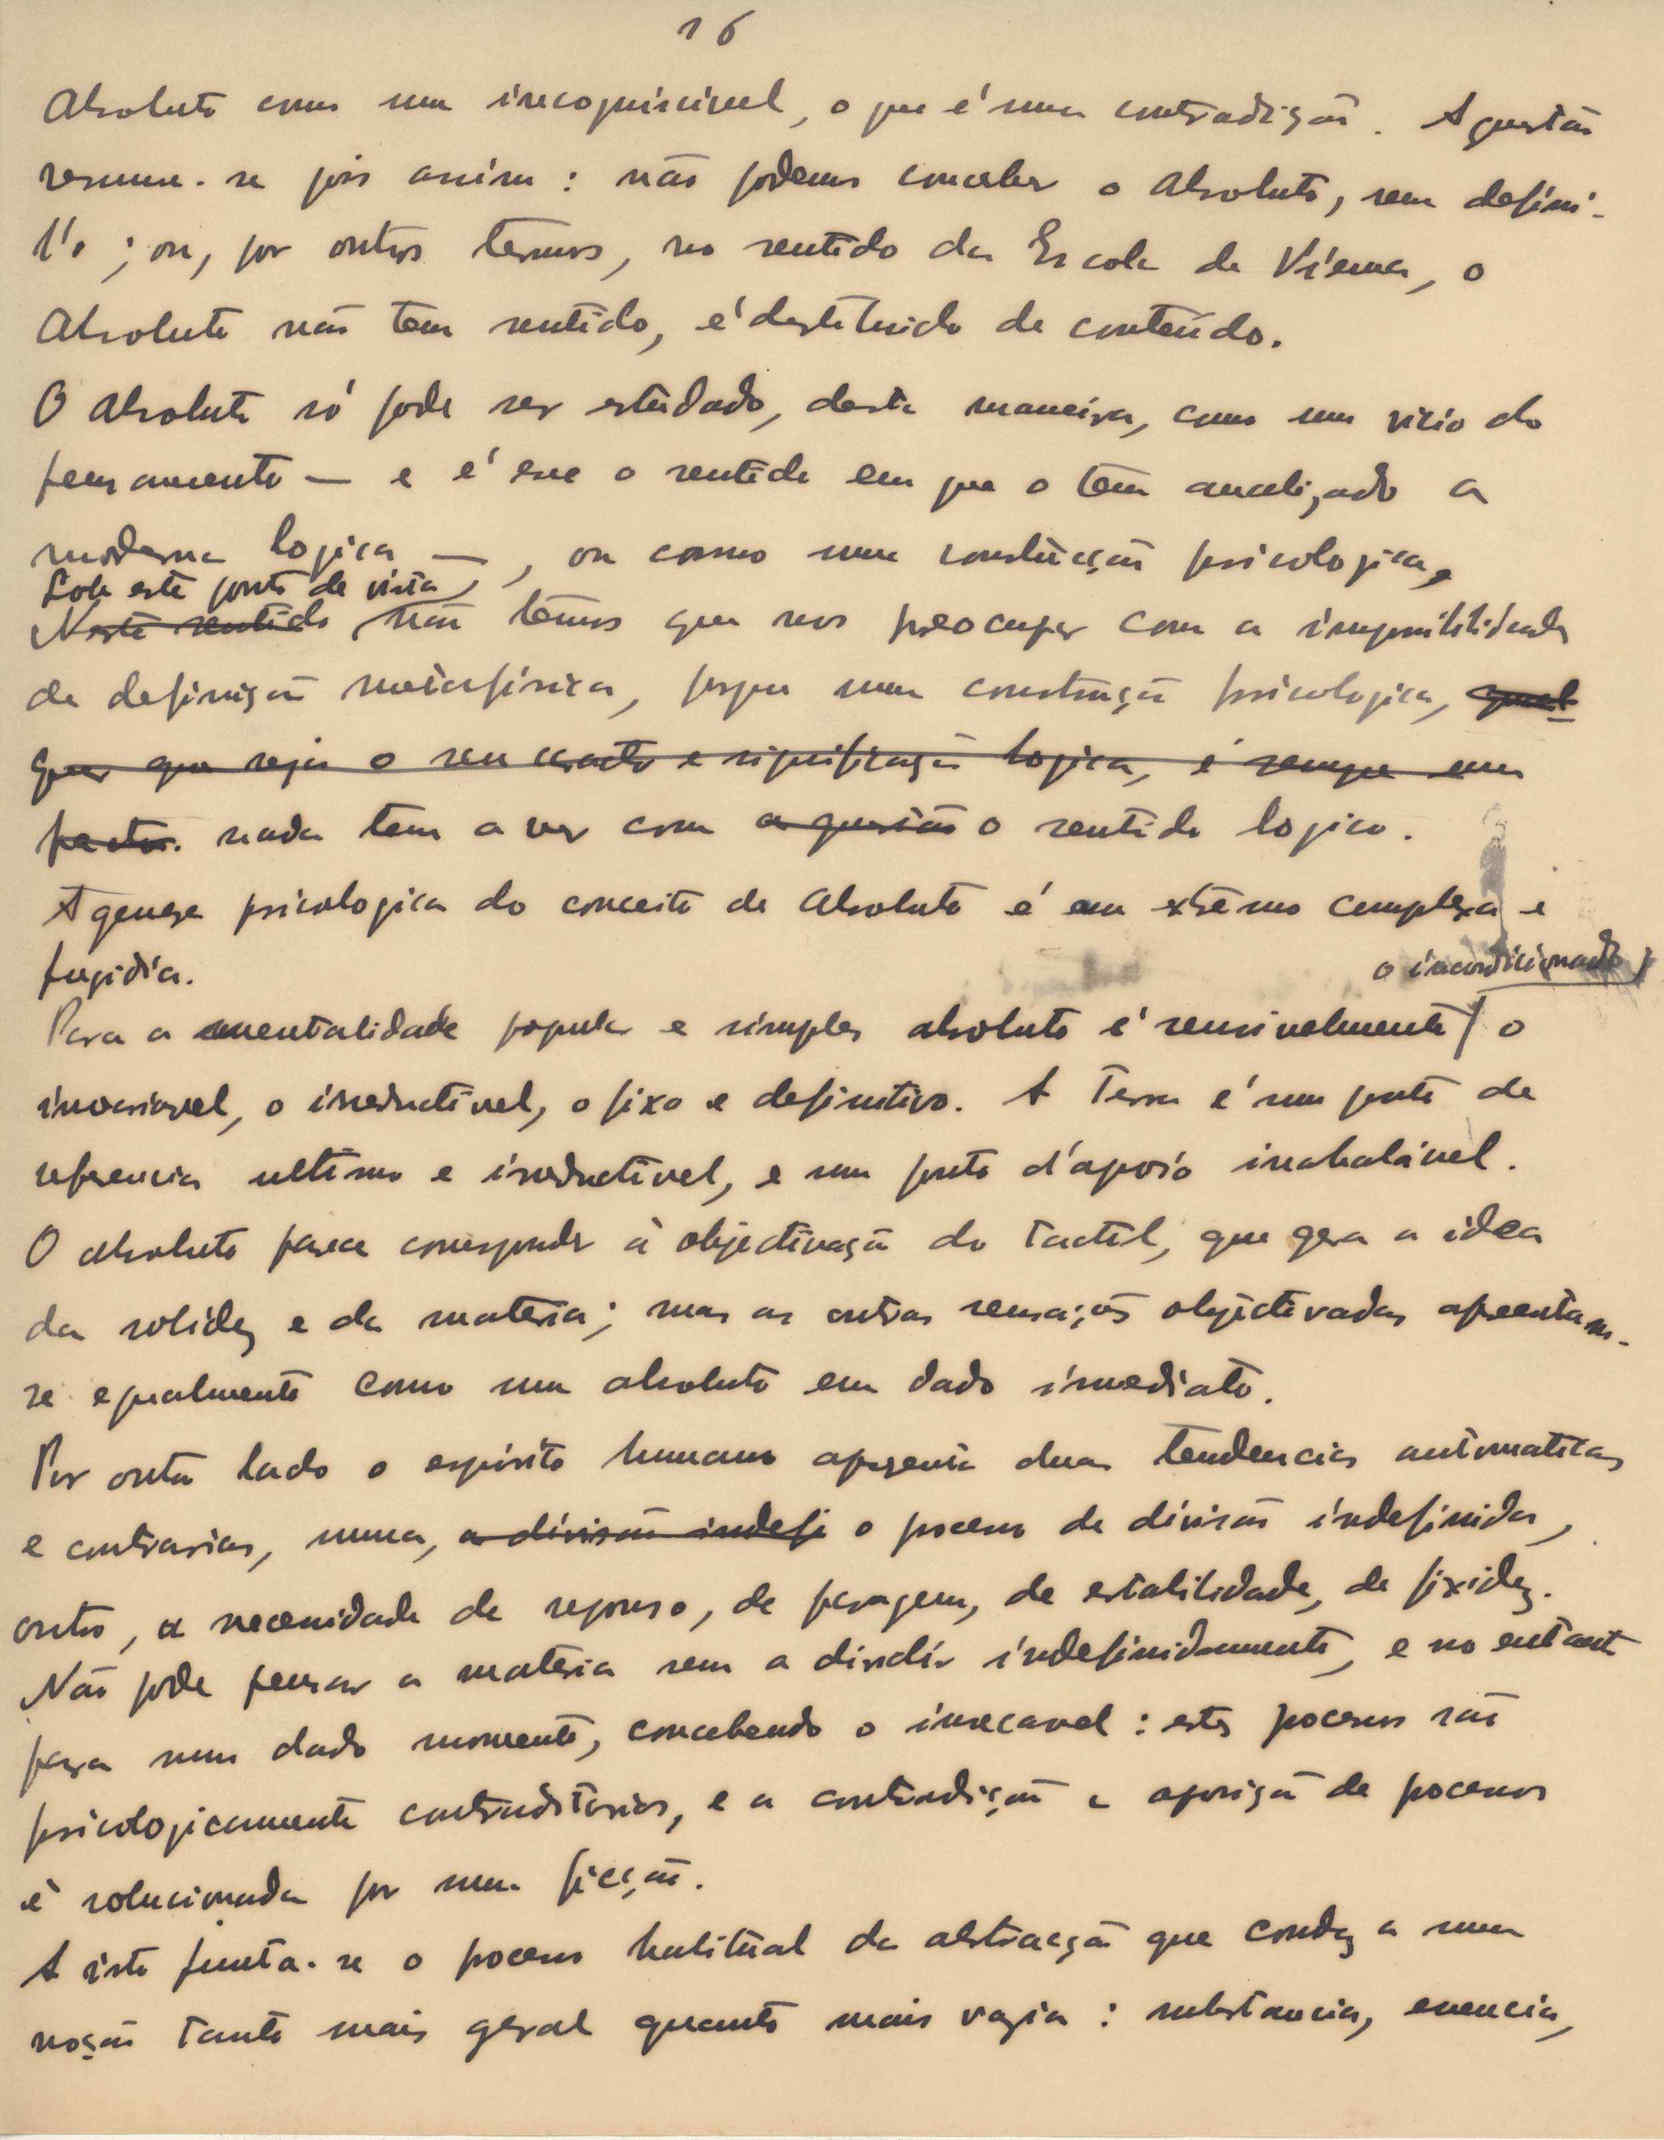 16
Absoluto como um incognoscivel, o que é uma contradição. A questão
resume-se pois assim: não podemos conceber o Absoluto, sem defini-
l'o; ou, por outros termos, no sentido da Escola de Viena, o
Absoluto não tem sentido, é destituido de conteúdo.
O Absoluto só pode ser estudado, desta maneira, como um vicio do
pensamento — e é esse o sentido em que o tem analizado a
moderna logica —, ou como uma construcção psicologica.
Sob este ponto de vista,
Neste sentido não temos que nos preocupar com a impossibilidade
de definição metafisica, porque uma construção psicologica, qual-
quer que seja o seu exacto e significação logica, é sempre um
facto. nada tem a ver com a questão o sentido logico.
A genese psicologica do conceito de Absoluto é em extremo complexa e
fugidía.
o incondicionado,
Para a mentalidade popular e simples absoluto é sensivelmente o
invariavel, o irreductivel, o fixo e definitivo. A Terra é um ponto de
referencia ultimo e irreductivel, e um ponto d'apoio inabalável.
O absoluto parece corresponder à objectivação do tactil, que gera a idea
da solidez e da materia; mas as outras sensações objectivadas apresentam-
se egualmente como um absoluto em dado imediato.
Por outro lado o espirito humano apresenta duas tendencias automaticas
e contrarias, numa, a divisão indefi o processo de divisão indefinida,
outro, a necessidade de repouso, de paragem, de estabilidade, de fixidez.
Não pode pensar a materia sem a dividir indefinidamente, e no entanto
para num dado momento, concebendo o insecavel: estes processos são
psicologicamente contraditorios, e a contradição e oposição de processos
é solucionada por uma ficção.
A isto junta-se o processo habitual da abstracção que conduz a uma
noção tanto mais geral quanto mais vazia: substancia, essencia,